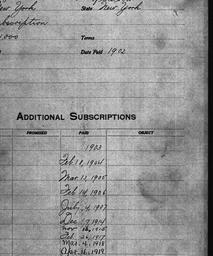 New York
State New York
Subscription
Terms
Date Paid 1902
ADDITIONAL SUBSCRIPTIONS
PROMISED PAID OBJECT
1903
Feb 18, 1904
Mar 13, 1905
Feb 14, 1906
July 4, 1907
Dec 17, 1914
Nov 16, 1915
Feb. 26, 1917
Mar. 4, 1918
Apr. 16, 1919